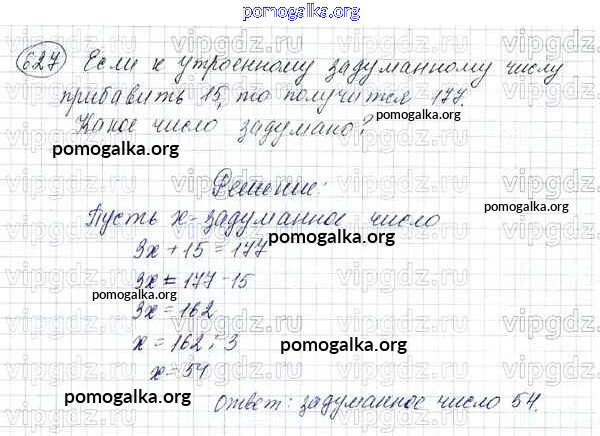 pomogalka.org
627 Если к утроенному задуманному числу
прибавить 15, то получится 177.
Какое число задумано?
pomogalka.org
pomogalka.org
Решение:
Пусть x - задуманное число
pomogalka.org
3x + 15 = 177
pomogalka.org
3x = 177 - 15
pomogalka.org
3x = 162
x = 162 : 3
pomogalka.org
x = 54
pomogalka.org
pomogalka.org
Ответ: задуманное число 54.
vipgdz.ru